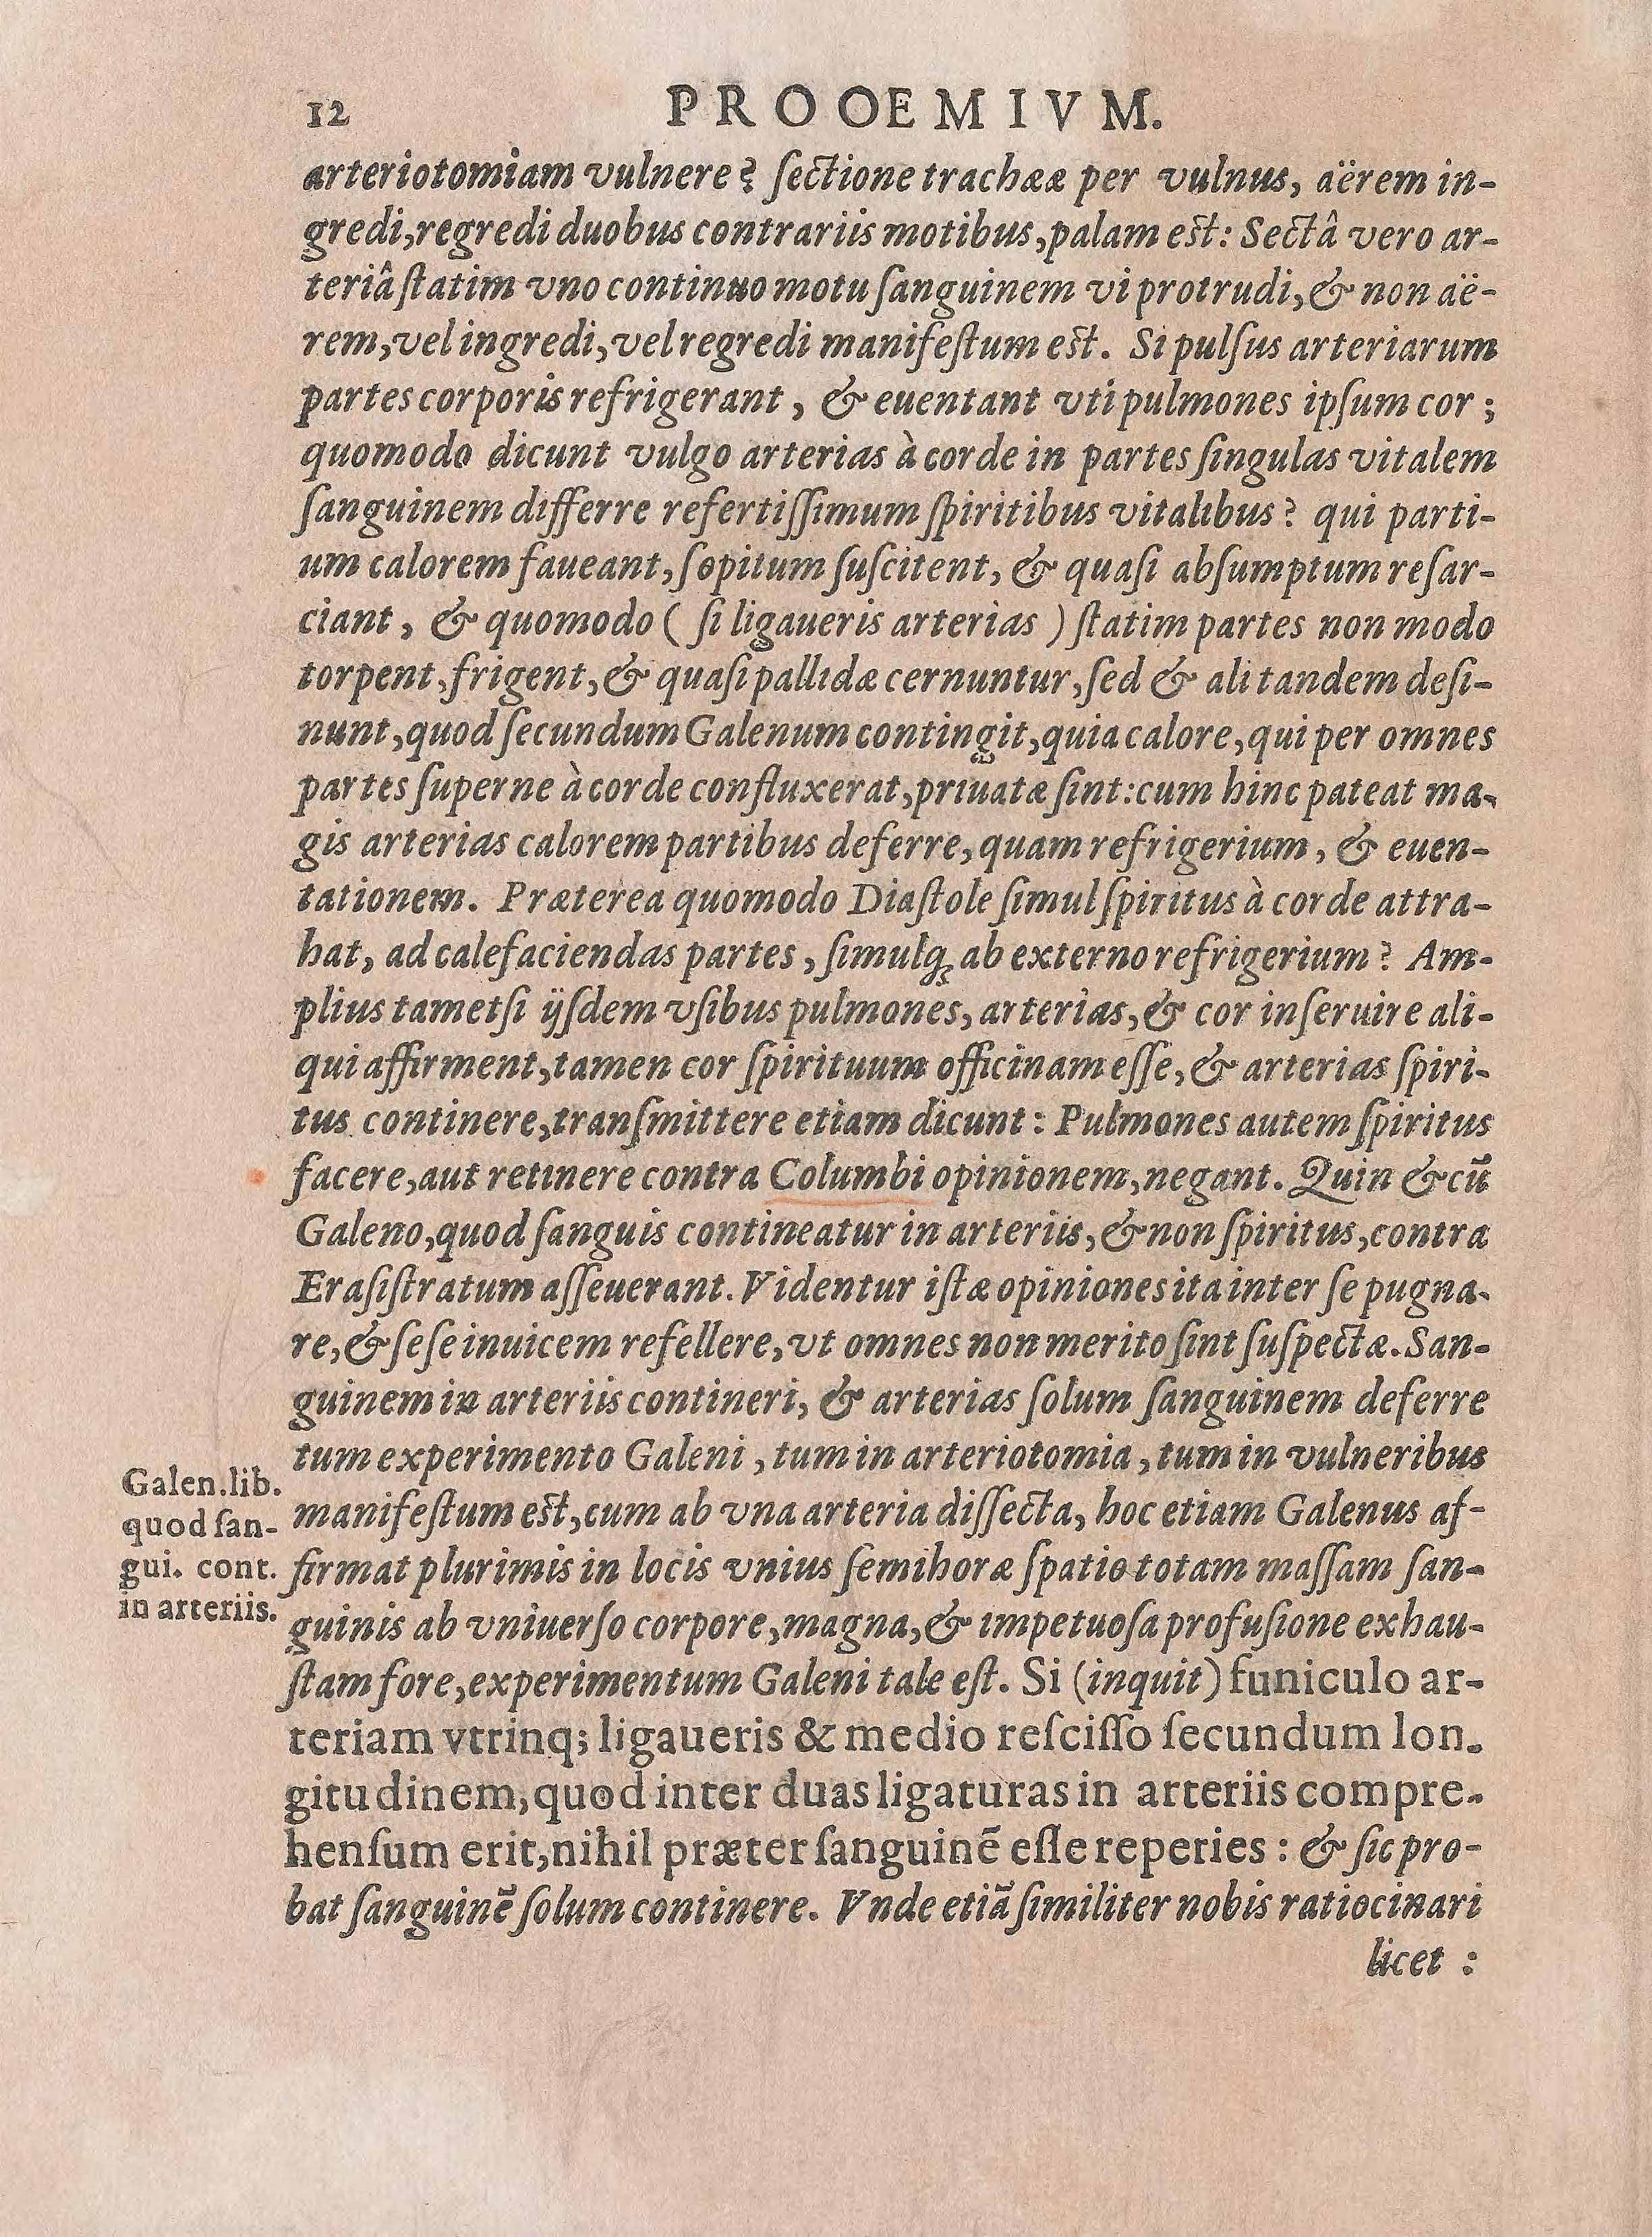 12 PROOEMIVM.
arteriotomiam vulnere? ſectione trachææ per vulnus, aërem in-
gredi,regredi duobus contrariis motibus,palam est: Sectâ vero ar-
teriâ ſtatim vno continuo motu ſanguinem vi protrudi,& non aë-
rem,vel ingredi,vel regredi manifeſtum est. Si pulſus arteriarum
partes corporis refrigerant, & euentant vti pulmones ipſum cor;
quomodo dicunt vulgo arterias à corde in partes ſingulas vitalem
ſanguinem differre refertiſſimum ſpiritibus vitalibus? qui parti-
um calorem faueant,ſopitum ſuſcitent, & quaſi abſumptum reſar-
ciant, & quomodo ( ſi ligaueris arterias ) ſtatim partes non modo
torpent,frigent,& quaſi pallidæ cernuntur,ſed & ali tandem deſi-
nunt,quod ſecundum Galenum contingit,quia calore,qui per omnes
partes ſuperne à corde confluxerat,priuatæ ſint:cum hinc pateat ma-
gis arterias calorem partibus deferre, quam refrigerium, & euen-
tationem. Præterea quomodo Diaſtole ſimul ſpiritus à corde attra-
hat, ad calefaciendas partes, ſimulq́ʒ ab externo refrigerium? Am-
plius tametſi ijſdem vſibus pulmones, arterias,& cor inſeruire ali-
qui affirment,tamen cor ſpirituum officinam eſſe,& arterias ſpiri-
tus continere,tranſmittere etiam dicunt: Pulmones autem ſpiritus
facere,aut retinere contra Columbi opinionem,negant. Quin & cū
Galeno,quod ſanguis contineatur in arteriis,& non ſpiritus,contra
Eraſiſtratum aſſeuerant. Videntur iſtæ opiniones ita inter ſe pugna-
re,& ſeſe inuicem refellere,vt omnes non merito ſint ſuſpectæ. San-
guinem in arteriis contineri, & arterias ſolum ſanguinem deferre
tum experimento Galeni, tum in arteriotomia, tum in vulneribus
manifeſtum est,cum ab vna arteria diſſecta, hoc etiam Galenus af-
firmat plurimis in locis vnius ſemihoræ ſpatio totam maſſam ſan-
guinis ab vniuerſo corpore,magna,& impetuoſa profuſione exhau-
ſtam fore,experimentum Galeni tale eſt. Si (inquit) funiculo ar-
teriam vtrinq; ligaueris & medio reſciſſo ſecundum lon-
gitudinem,quod inter duas ligaturas in arteriis compre-
henſum erit,nihil præter ſanguinē eſſe reperies: & ſic pro-
bat ſanguinē ſolum continere. Vnde etiā ſimiliter nobis ratiocinari
licet :
Galen.lib.
quod ſan-
gui. cont.
in arteriis.